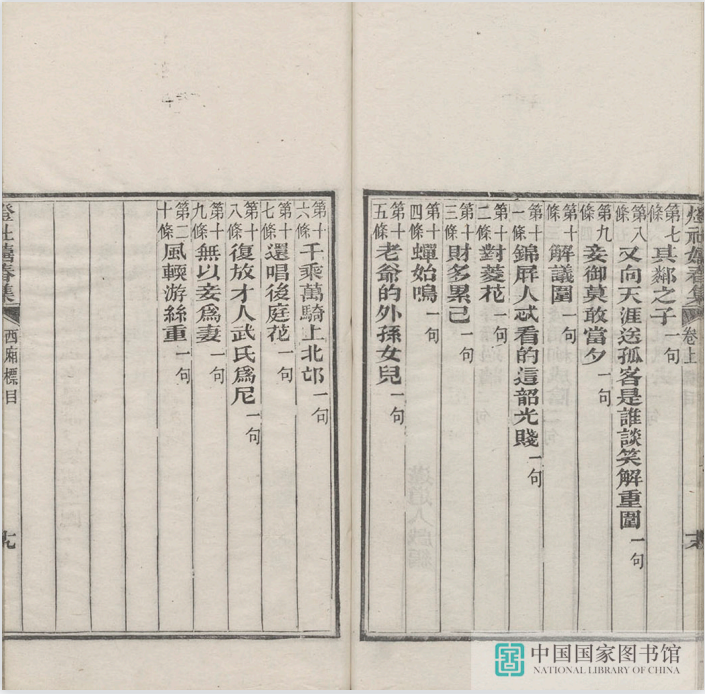 卷上
第七條 其鄰之子 一句
第八條 又向天涯送孤客是誰談笑解重圍 一句
第九條 妾御莫敢當夕 一句
第十條 解議圍 一句
第十一條 錦屏人忒看的這韶光賤 一句
第十二條 對菱花 一句
第十三條 財多累己 一句
第十四條 蟬始鳴 一句
第十五條 老爺的外孫女兒 一句
第十六條 千乘萬騎上北邙 一句
第十七條 還唱後庭花 一句
第十八條 復放才人武氏爲尼 一句
第十九條 無以妾爲妻 一句
第二十條 風輭游絲重 一句
春集 西廂標目
中国国家图书馆
NATIONAL LIBRARY OF CHINA